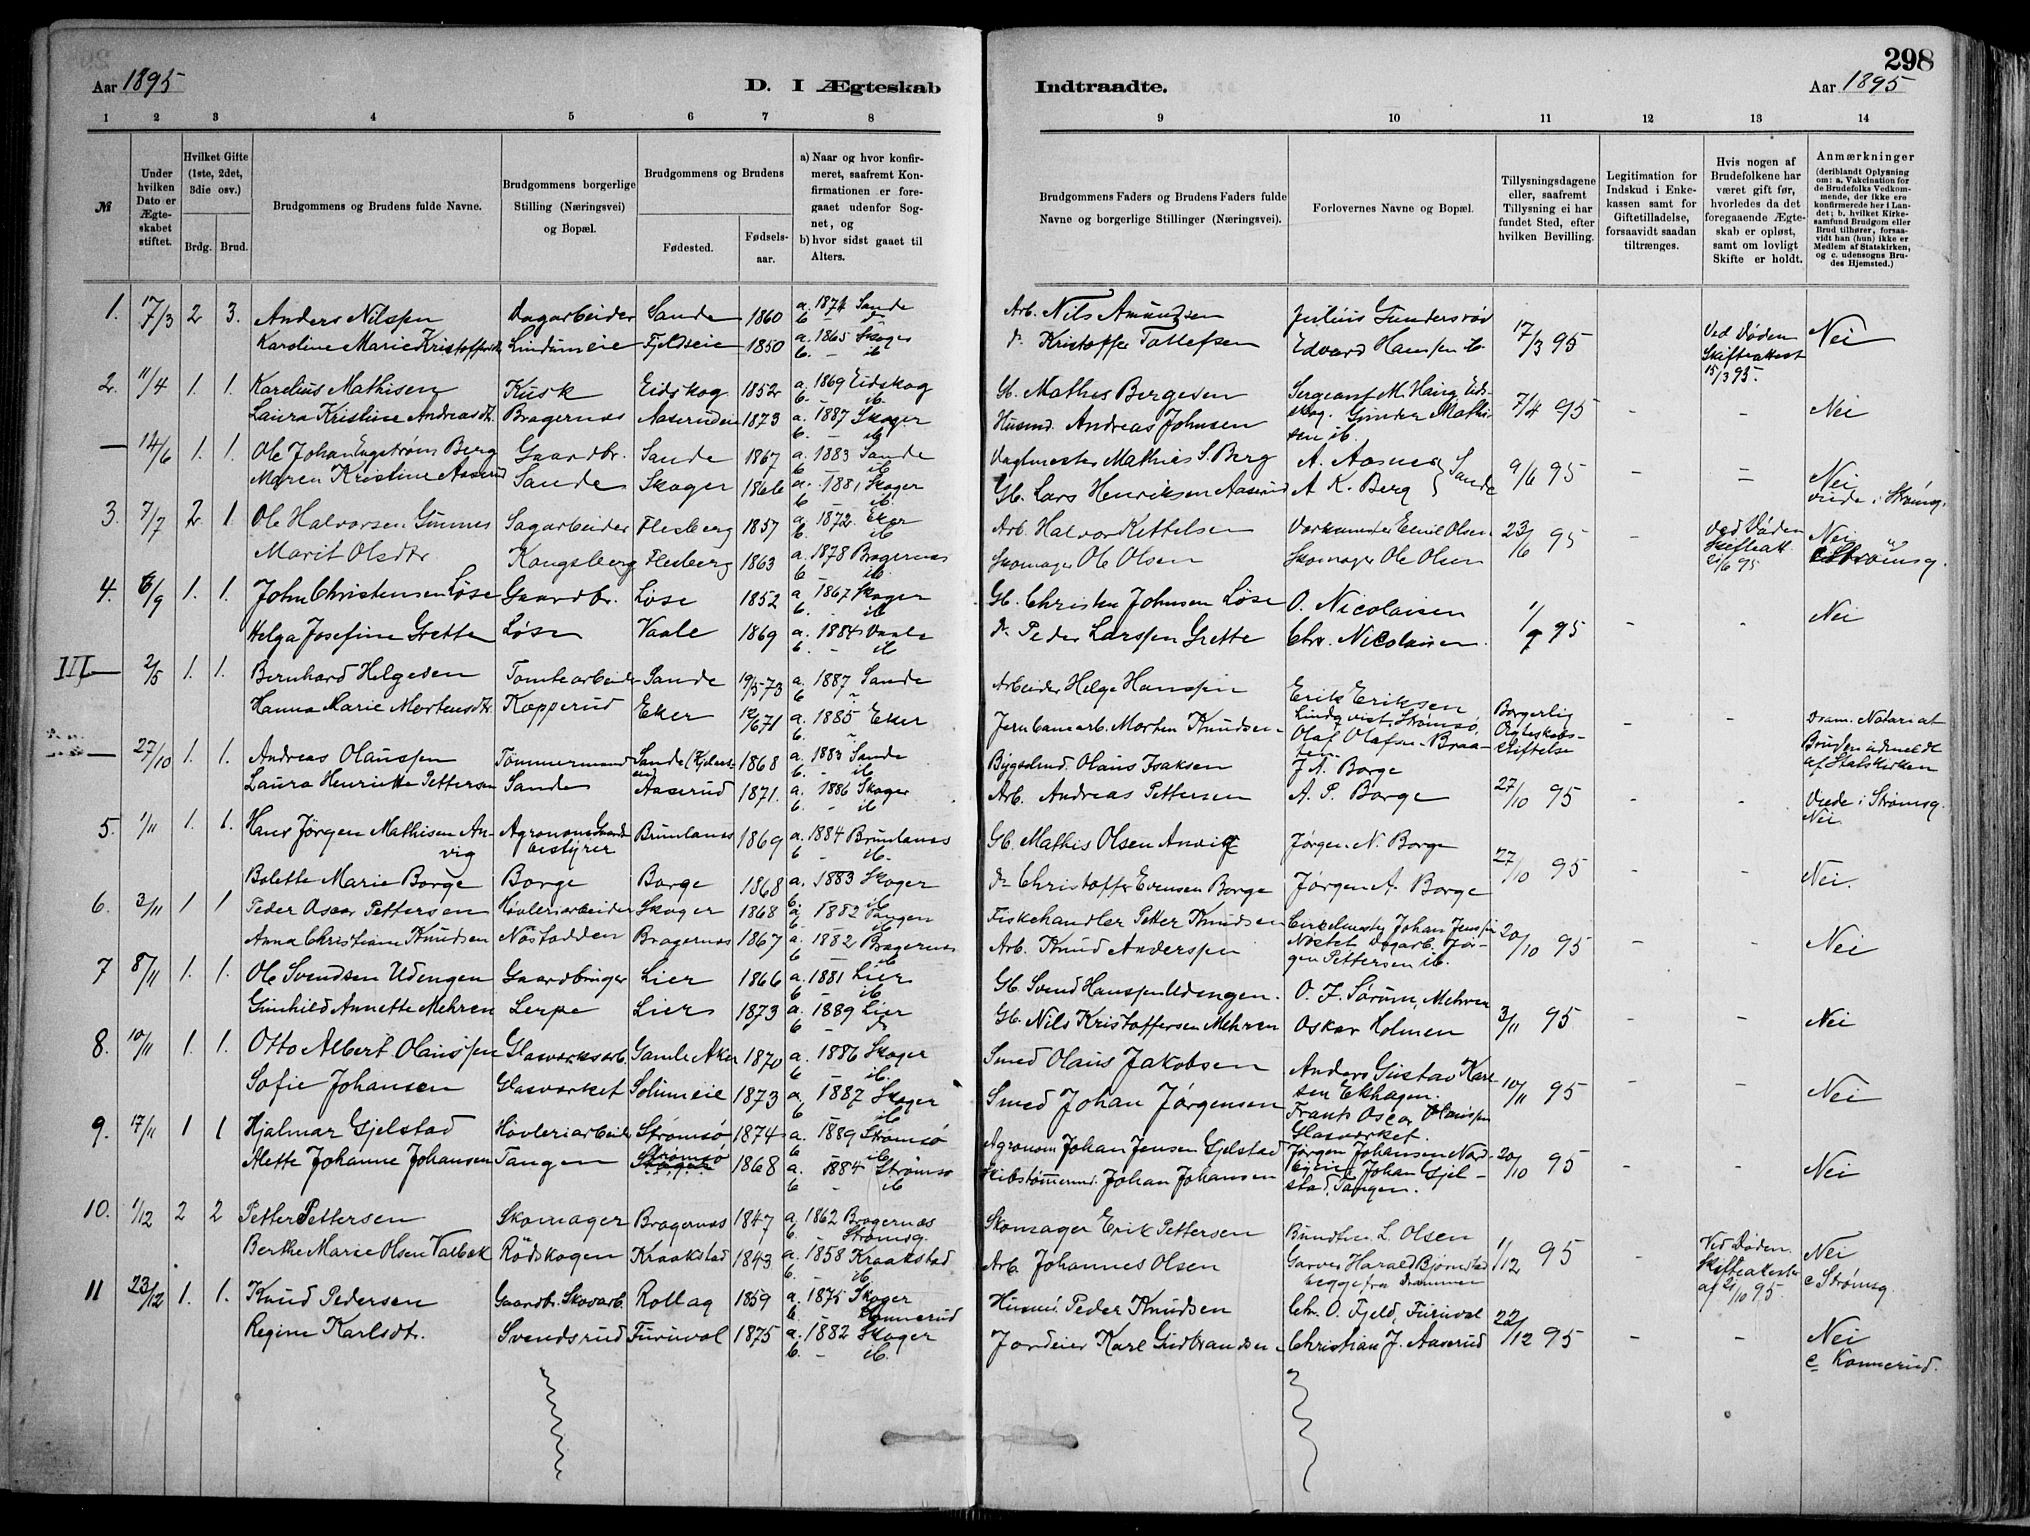 298
Aar 1895
D. I Ægteskab
Indtraadte.
Aar 1895
1 2 3 4 5 6 7 8
9 10 11 12 13 14
№
Under hvilken Dato er Ægteskabet stiftet.
Hvilket Gifte (1ste, 2det, 3die osv.)
Brdg. Brud.
Brudgommens og Brudens fulde Navne.
Brudgommens borgerlige Stilling (Næringsvei) og Bopæl.
Brudgommens og Brudens
Fødested.
Fødselsaar.
a) Naar og hvor konfirmeret, saafremt Konfirmationen er foregaaet udenfor Sognet, og
b) hvor sidst gaaet til Alters.
Brudgommens Faders og Brudens Faders fulde Navne og borgerlige Stillinger (Næringsvei).
Forlovernes Navne og Bopæl.
Tillysningsdagene eller, saafremt Tillysning ei har fundet Sted, efter hvilken Bevilling.
Legitimation for Indskud i Enkekassen samt for Giftetilladelse, forsaavidt saadan tiltrænges.
Hvis nogen af Brudefolkene har været gift før, hvorledes da det foregaaende Ægteskab er opløst, samt om lovligt Skifte er holdt.
Anmærkninger (deriblandt Oplysning om: a. Vakcination for de Brudefolks Vedkommende, der ikke ere konfirmerede her i Landet; b. hvilket Kirkesamfund Brudgom eller Brud tilhører, forsaavidt han (hun) ikke er Medlem af Statskirken, og c. udensogns Brudes Hjemsted.)
1. 17/3 2 3. Anders Nilssen Dagarbeider Sande 1860 a. 1874 Sande Arb. Nils Amundsen Julius Gundersrød 17/3 95 Ved Døden Skifteattest 15/3 95. Nei
Karoline Marie Kristoffersdtr. Lindumeie Fjeldseie 1850 a. 1865 Skoger b. - ib Kristoffer Tollefsen Edvard Hansen ib
2. 11/4 1. 1. Karelius Mathisen Kusk Eidskog 1852 a. 1869 Eidskog b. ib. Gb. Mathis Bergesen Sergeant M. Haug Eidskog. Gunder Mathisen ib. 7/4 95 - - Nei
Laura Kristine Andreasdt. Bragernæs Aaserudeie 1873 a. 1887 Skoger b. - ib. Husmd. Andreas Johnsen
- 14/6 1. 1. Ole Johan Engstrøm Berg Gaardbr. Sande 1867 a. 1883 Sande b. ib. Vagtmester Mathias S. Berg A. Aasnes Sande 9/6 95 - = Nei
Maren Kristine Aaserud Sande Skoger 1866 a. 1881 Skoger b. ib. Gb. Lars Henriksen Aaserud A. K. Berg viede i Strømsg.
3. 7/7 2 1. Ole Halvorsen Gunnes Sagarbeider Flesberg 1857 a. 1872. Eker b. ib. Arb. Halvor Kittelsen Emil Olsen 23/6 95 Ved Døden Skifteatt. 21/6 95 Nei
Marit Olsdtr. Kongsberg Flesberg 1863 a. 1878 Bragernæs b. ib. Skomager Ole Olsen Skomager Ole Olsen c Strømsg.
4. 6/9 1. 1. John Christensen Løse Gaardbr. Løse 1852 a. 1867 Skoger b. - ib Gb. Christen Johnsen Løse O. Nicolaisen 1/9 95 - - Nei
Helga Josefine Grette Løse Vaale 1869 a. 1884 Vaale b. - ib Peder Larssen Grette Chr. Nicolaisen.
III 2/5 1. 1. Bernhard Helgesen Tomtearbeider Sande 19/5 73 a. 1887 Sande b. Arbeider Helge Hanssen Erik Eriksen Lindqvist, Strømsø. Borgerlig Ægteskabsstiftelse - - Dram. Notariat
Hanna Marie Mortensdtr. Kopperud Eker 12/6 71 a. 1885 Eker b. Jernbanearb. Morten Knudsen Olaf Olafsen Braaten Bruden udmeldt af Statskirken
- 27/10 1. 1. Andreas Olaussen Tømmermand Sande 1868 a. 1883 Sande b. - ib. Bygselmd. Olaus Isaksen J. N. Borge 27/10 95 - - Viede i Strømsg. Nei.
Laura Henriette Pettersen Sande Aaserud 1871. a. 1886 Skoger b. - ib. Arb. Andreas Pettersen A. P. Borge
5. 1/11 1. 1. Hans Jørgen Mathisen Anvig Agronom Gaardsbestyrer Brunlanæs 1869 a. 1884 Brunlanæs b. - ib. Gb. Mathis Olsen Anvig Jørgen N. Borge 27/10 95 - - Nei.
Bolette Marie Borge Borge Borge 1868 a. 1883 Skoger b. ib. Christoffer Evensen Borge Jørgen A. Borge
6. 3/11 1 1 Peder Oscar Pettersen Høvleriarbeider Skoger 1868 a. 1882 Tangen b. ib. Fiskehandler Petter Knudsen Johan Jenssen Nøstet Dagarb. Jørgen Pettersen ib. 20/10 95 - - Nei
Anna Christiane Knudsen Nøstodden Bragernæs 1867 a. 1882 Bragernæs b. - ib. Arb. Knud Anderssen
7 8/11 1. 1. Ole Svendsen Udengen Gaardbruger Lier 1866 a. 1881 Lier b. - ib. Gb. Svend Hanssen Udengen. O. J. Sørum, Mehren 3/11 95 - - Nei
Gunhild Annette Mehren Lerpe Lier 1873 a. 1889 Lier b. - Gb. Nils Kristoffersen Mehren Oskar Holmen
8. 10/11 1. 1. Otto Albert Olaussen Glasværksarb. Gamle Aker 1870 a. 1886 Skoger b. ib. Smed Olaus Jakobsen Anders Gustav Karlsen Ekhagen. 10/11 95 - - Nei
Sofie Johansen Glasværket Solumeie 1873 a. 1887 Skoger b. ib. Smed Johan Jørgensen Frants Oscar Olaussen Glasværket.
9. 17/11 1 1 Hjalmar Gjelstad Høvleriarbeider Strømsø 1874 a. 1889 Strømsø b. - ib. Agronom Johan Jensen Gjelstad Jørgen Johansen 20/10 95 - - Nei
Alette Johanne Johansen Tangen Strømsø 1868 a. 1884 Strømsø b. - ib Skibstømmermd. Johan Johansen Johan Gjelstad, Tangen.
10. 1/12 2 2 Petter Pettersen Skomager Bragernæs 1847 a. 1862 Bragernæs b. Strømsg. Skomager Erik Pettersen Bundtm. L. Olsen 1/12 95 - Ved Døden. Skifteattester af 21/10 95. Nei
Berthe Marie Olsen Valbak Rødskogen Kraakstad 1843 a. 1858 Kraakstad b. - ib. Arb. Johannes Olsen Garver Harald Bjørnstad begge fra Drammen c Strømsg.
11 23/12 1. 1. Knud Pedersen Gaardbr. Skovarb. Rollag 1859 a. 1875 Skoger b. Konnerud Husmd. Peder Knudsen Chr. O. Fjeld, Furuvol 22/12 95 - - Nei
Regine Karlsdtr. Svendsrud Furuvol 1875 a. 1882 Skoger b. - ib. Jordeier Karl Gudbrandsen Christian J. Aaserud c Konnerud.